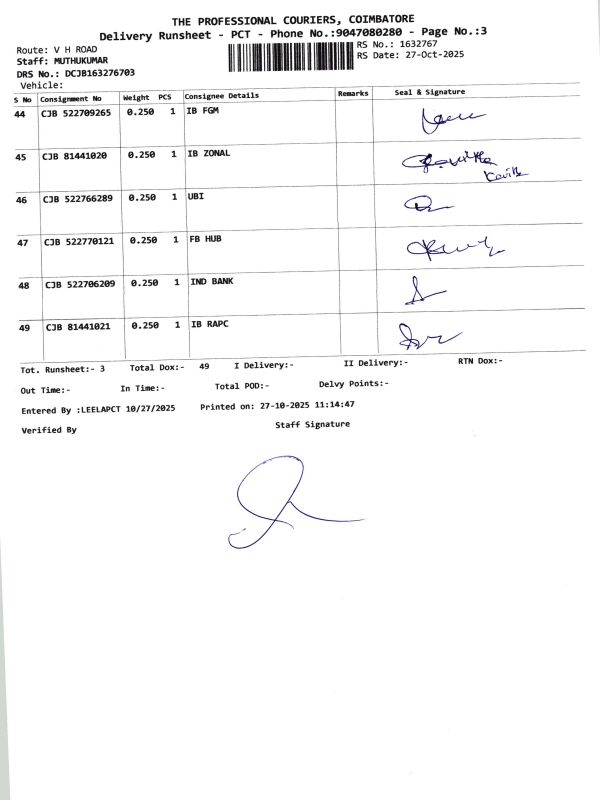 THE PROFESSIONAL COURIERS, COIMBATORE
Delivery Runsheet - PCT - Phone No.:9047080280 - Page No.:3
Route: V H ROAD
RS No.: 1632767
Staff: MUTHUKUMAR
RS Date: 27-Oct-2025
DRS No.: DCJB163276703
Vehicle:
S No Consignment No Weight PCS Consignee Details Remarks Seal & Signature
44 CJB 522709265 0.250 1 IB FGM
45 CJB 81441020 0.250 1 IB ZONAL
46 CJB 522766289 0.250 1 UBI
47 CJB 522770121 0.250 1 FB HUB
48 CJB 522706209 0.250 1 IND BANK
49 CJB 81441021 0.250 1 IB RAPC
Tot. Runsheet:- 3 Total Dox:- 49 I Delivery:- II Delivery:- RTN Dox:-
Out Time:- In Time:- Total POD:- Delvy Points:-
Entered By :LEELAPCT 10/27/2025 Printed on: 27-10-2025 11:14:47
Verified By Staff Signature